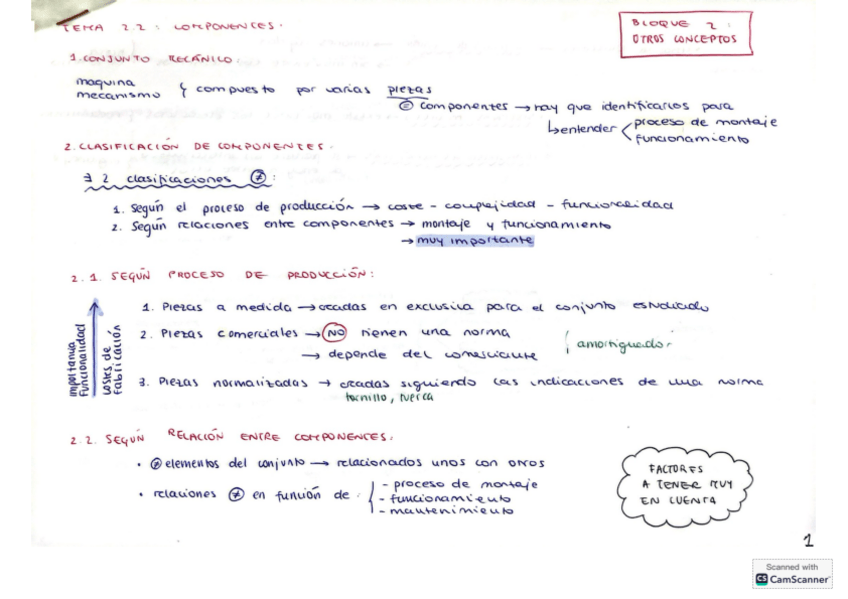 TEMA 2.2: COMPONENTES.
BLOQUE 2:
OTROS CONCEPTOS
1. CONJUNTO MECÁNICO:
maquina
mecanismo } compuesto por varias piezas
≠ componentes → hay que identificarlos para
↳ entender < proceso de montaje
funcionamiento
2. CLASIFICACIÓN DE COMPONENTES.
∃ 2 clasificaciones ≠:
1. Según el proceso de producción → coste - complejidad - funcionalidad
2. Según relaciones entre componentes → montaje y funcionamiento
→ muy importante
2.1. SEGÚN PROCESO DE PRODUCCIÓN:
importancia
funcionalidad
costes de
fabricación
1. Piezas a medida → creadas en exclusiva para el conjunto estudiado
2. Piezas comerciales → NO tienen una norma
→ depende del comerciante
amortiguador
3. Piezas normalizadas → creadas siguiendo las indicaciones de una norma
tornillo, tuerca
2.2. SEGÚN RELACIÓN ENTRE COMPONENTES.
• ≠ elementos del conjunto → relacionados unos con otros
• relaciones ≠ en función de { - proceso de montaje
- funcionamiento
- mantenimiento
FACTORES
A TENER MUY
EN CUENTA
1
Scanned with
CS CamScanner